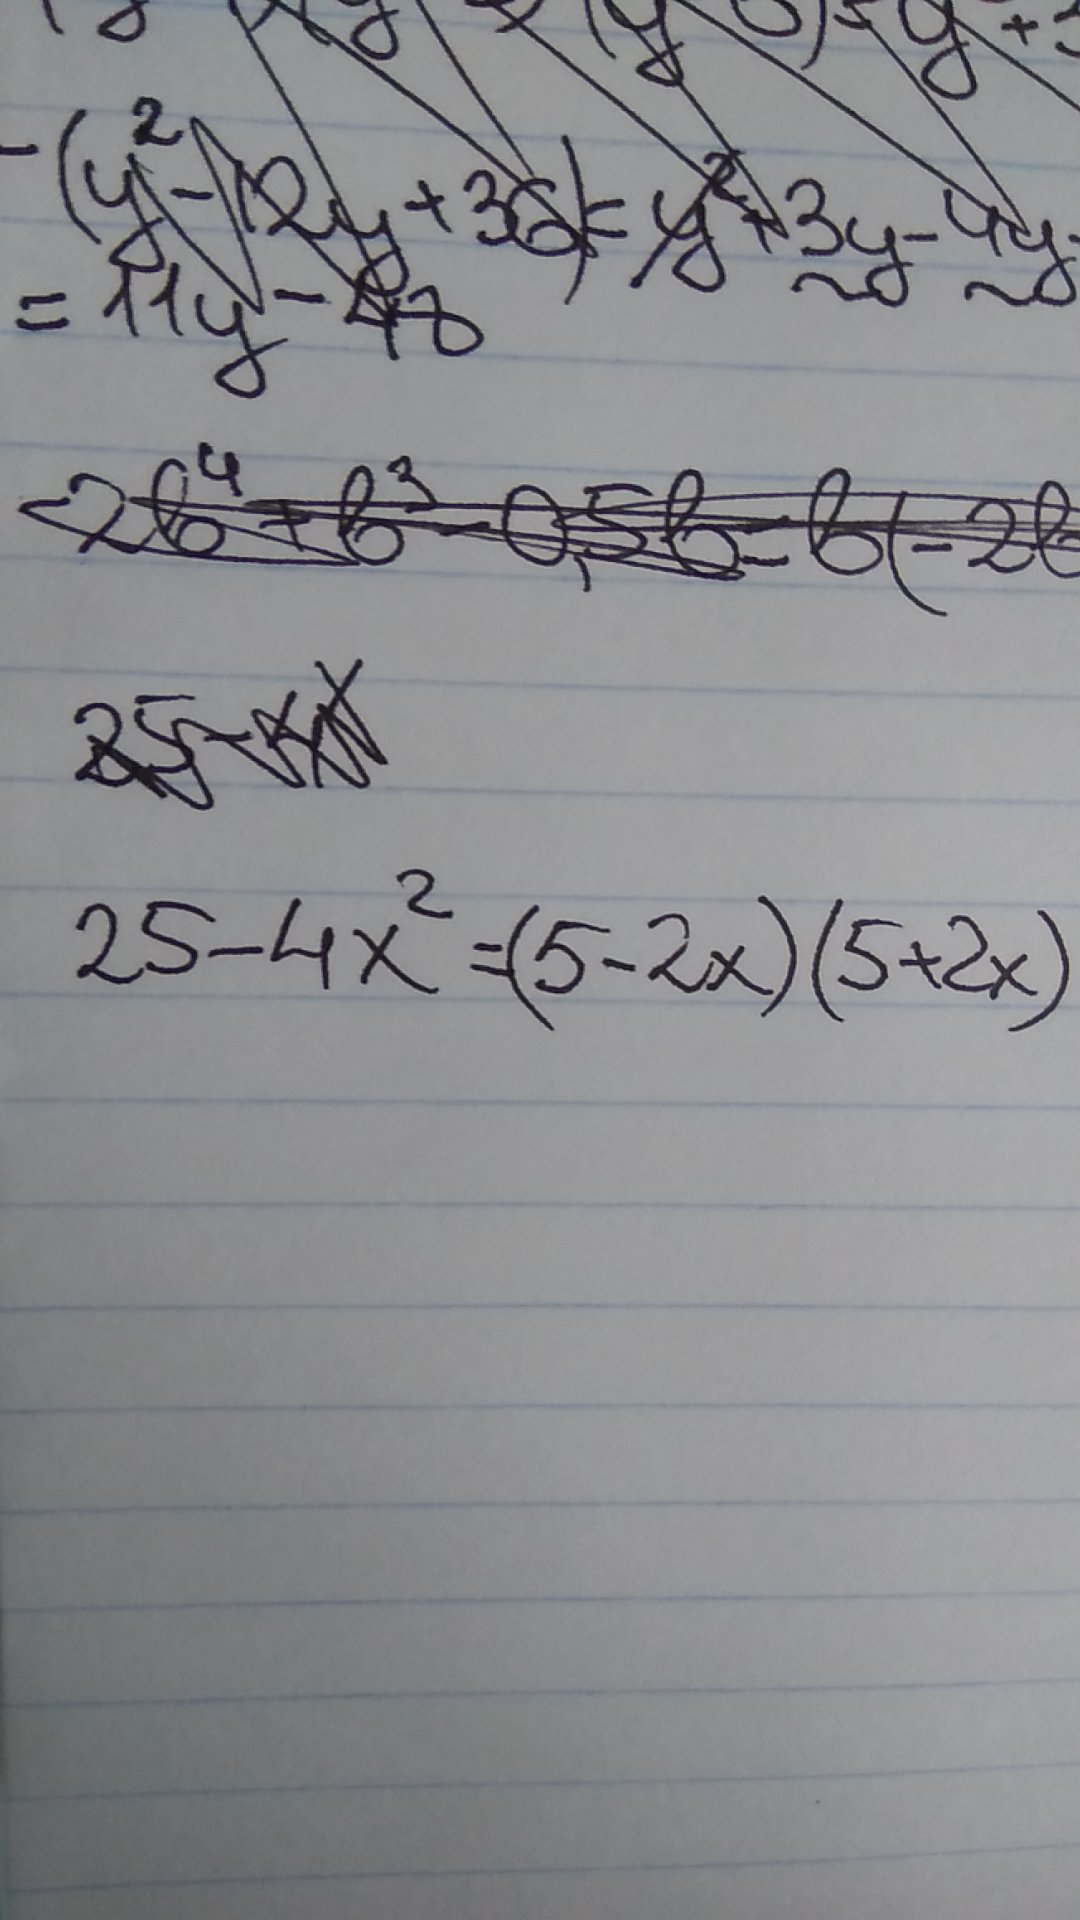 (y-6)²=y²+3
-(y²-12y+36)=y²+3y-4y-
=11y-48
-2b⁴+b³-0,5b=b(-2b
25-4x
25-4x²=(5-2x)(5+2x)